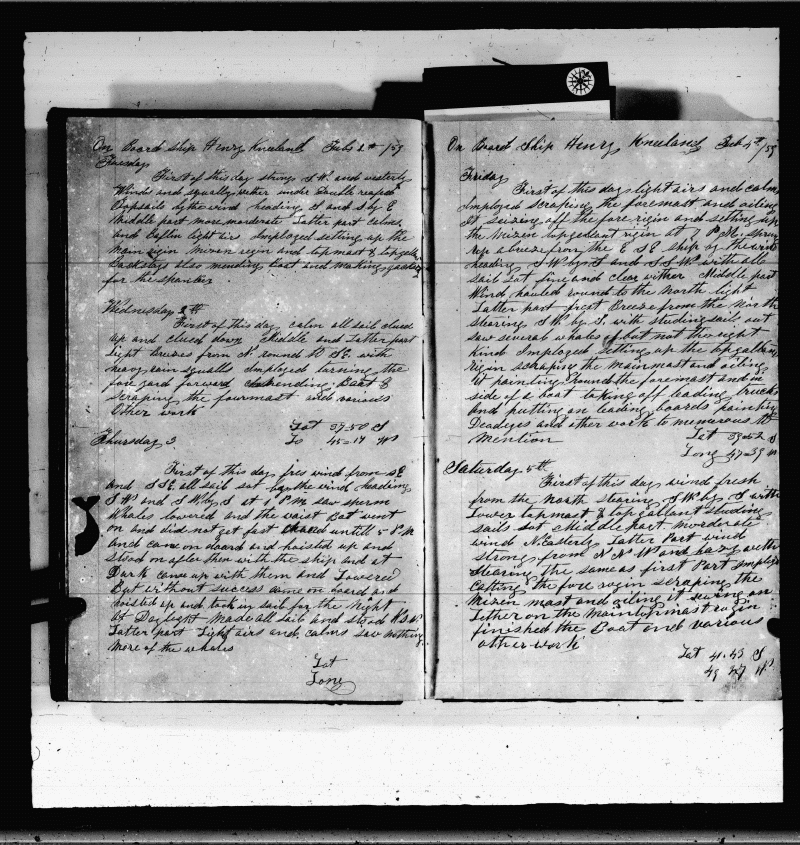 On Board Ship Henry Kneeland Feby 1st /59
Tuesday
First of this day strong S W and westerly
Winds and squally wether under Double reefed
Topsails by the wind heading S and S by E
Middle part more moderate Latter part calms
and Baflin light air Imployed setting up the
main rigin mizen rigin and topmast & topgallan
Backstays also mending Boat and making
for the spanker
Wednesday 2th
First of this day calm all sail clued
up and clued down Middle and Latter part
light Breezes from N round to SE with
heavy rain squalls Imployed turning the
fore yard forward mending Boat &
scraping the fourmast and various
Other work
Lat 37-50 S
Lo 45-17 W
Thursday 3
First of this day fres wind from SE
and SSE all sail sot by the wind heading
SW and SW by S at 1 PM saw sperm
Whales lowered and the waist Boat went
on and did not get fast chaced untill 5 P M
and came on board and hoisted up and
stood on after them with the ship and at
Dark came up with them and Lowered
But without success came on board and
hoisted up and took in sail for the night
At Day light made all sail and stood
Latter part Light airs and calms saw nothing
more of the whales
Lat
Long
On Board Ship Henry Kneeland Feb 4th /59
Friday
First of this day light airs and calm
Imployed scraping the foremast and oiling
it seizing off the fore rigin and setting up
the Mizen topgallant rigin at P M sprung
up a breeze from the E S E ship by the wind
heading S W by S and S S W with all
sail sot fine and clear wether Middle part
Wind hauled round to the North light
Latter part first Breeze from the North
stearing S W by S with studing sail out
saw several whales but not the right
Kind Imployed setting up the topgallan
rigin scraping the main mast and oiling
it painting round the foremast and in
side of a boat taking off leading trucks
and putting on leading boards painting
Deadeyes and other work to numerous to
Mention
Lat 39-52 S
Long 47-39 W
Saturday 5th
First of this day wind fresh
from the North stearing S W by S with
Lower topmast & topgallant studing
sails sot Middle part moderate
wind N Easterly Latter Part wind
strong from N N W and hazy wether
stearing the same as first Part Imploy
the fore rigin scraping the
Mizen mast and oiling it seizing on
Lether on the Maintopmast rigin
finished the Boat and various
other work
Lat 41-43 S
49 27 W